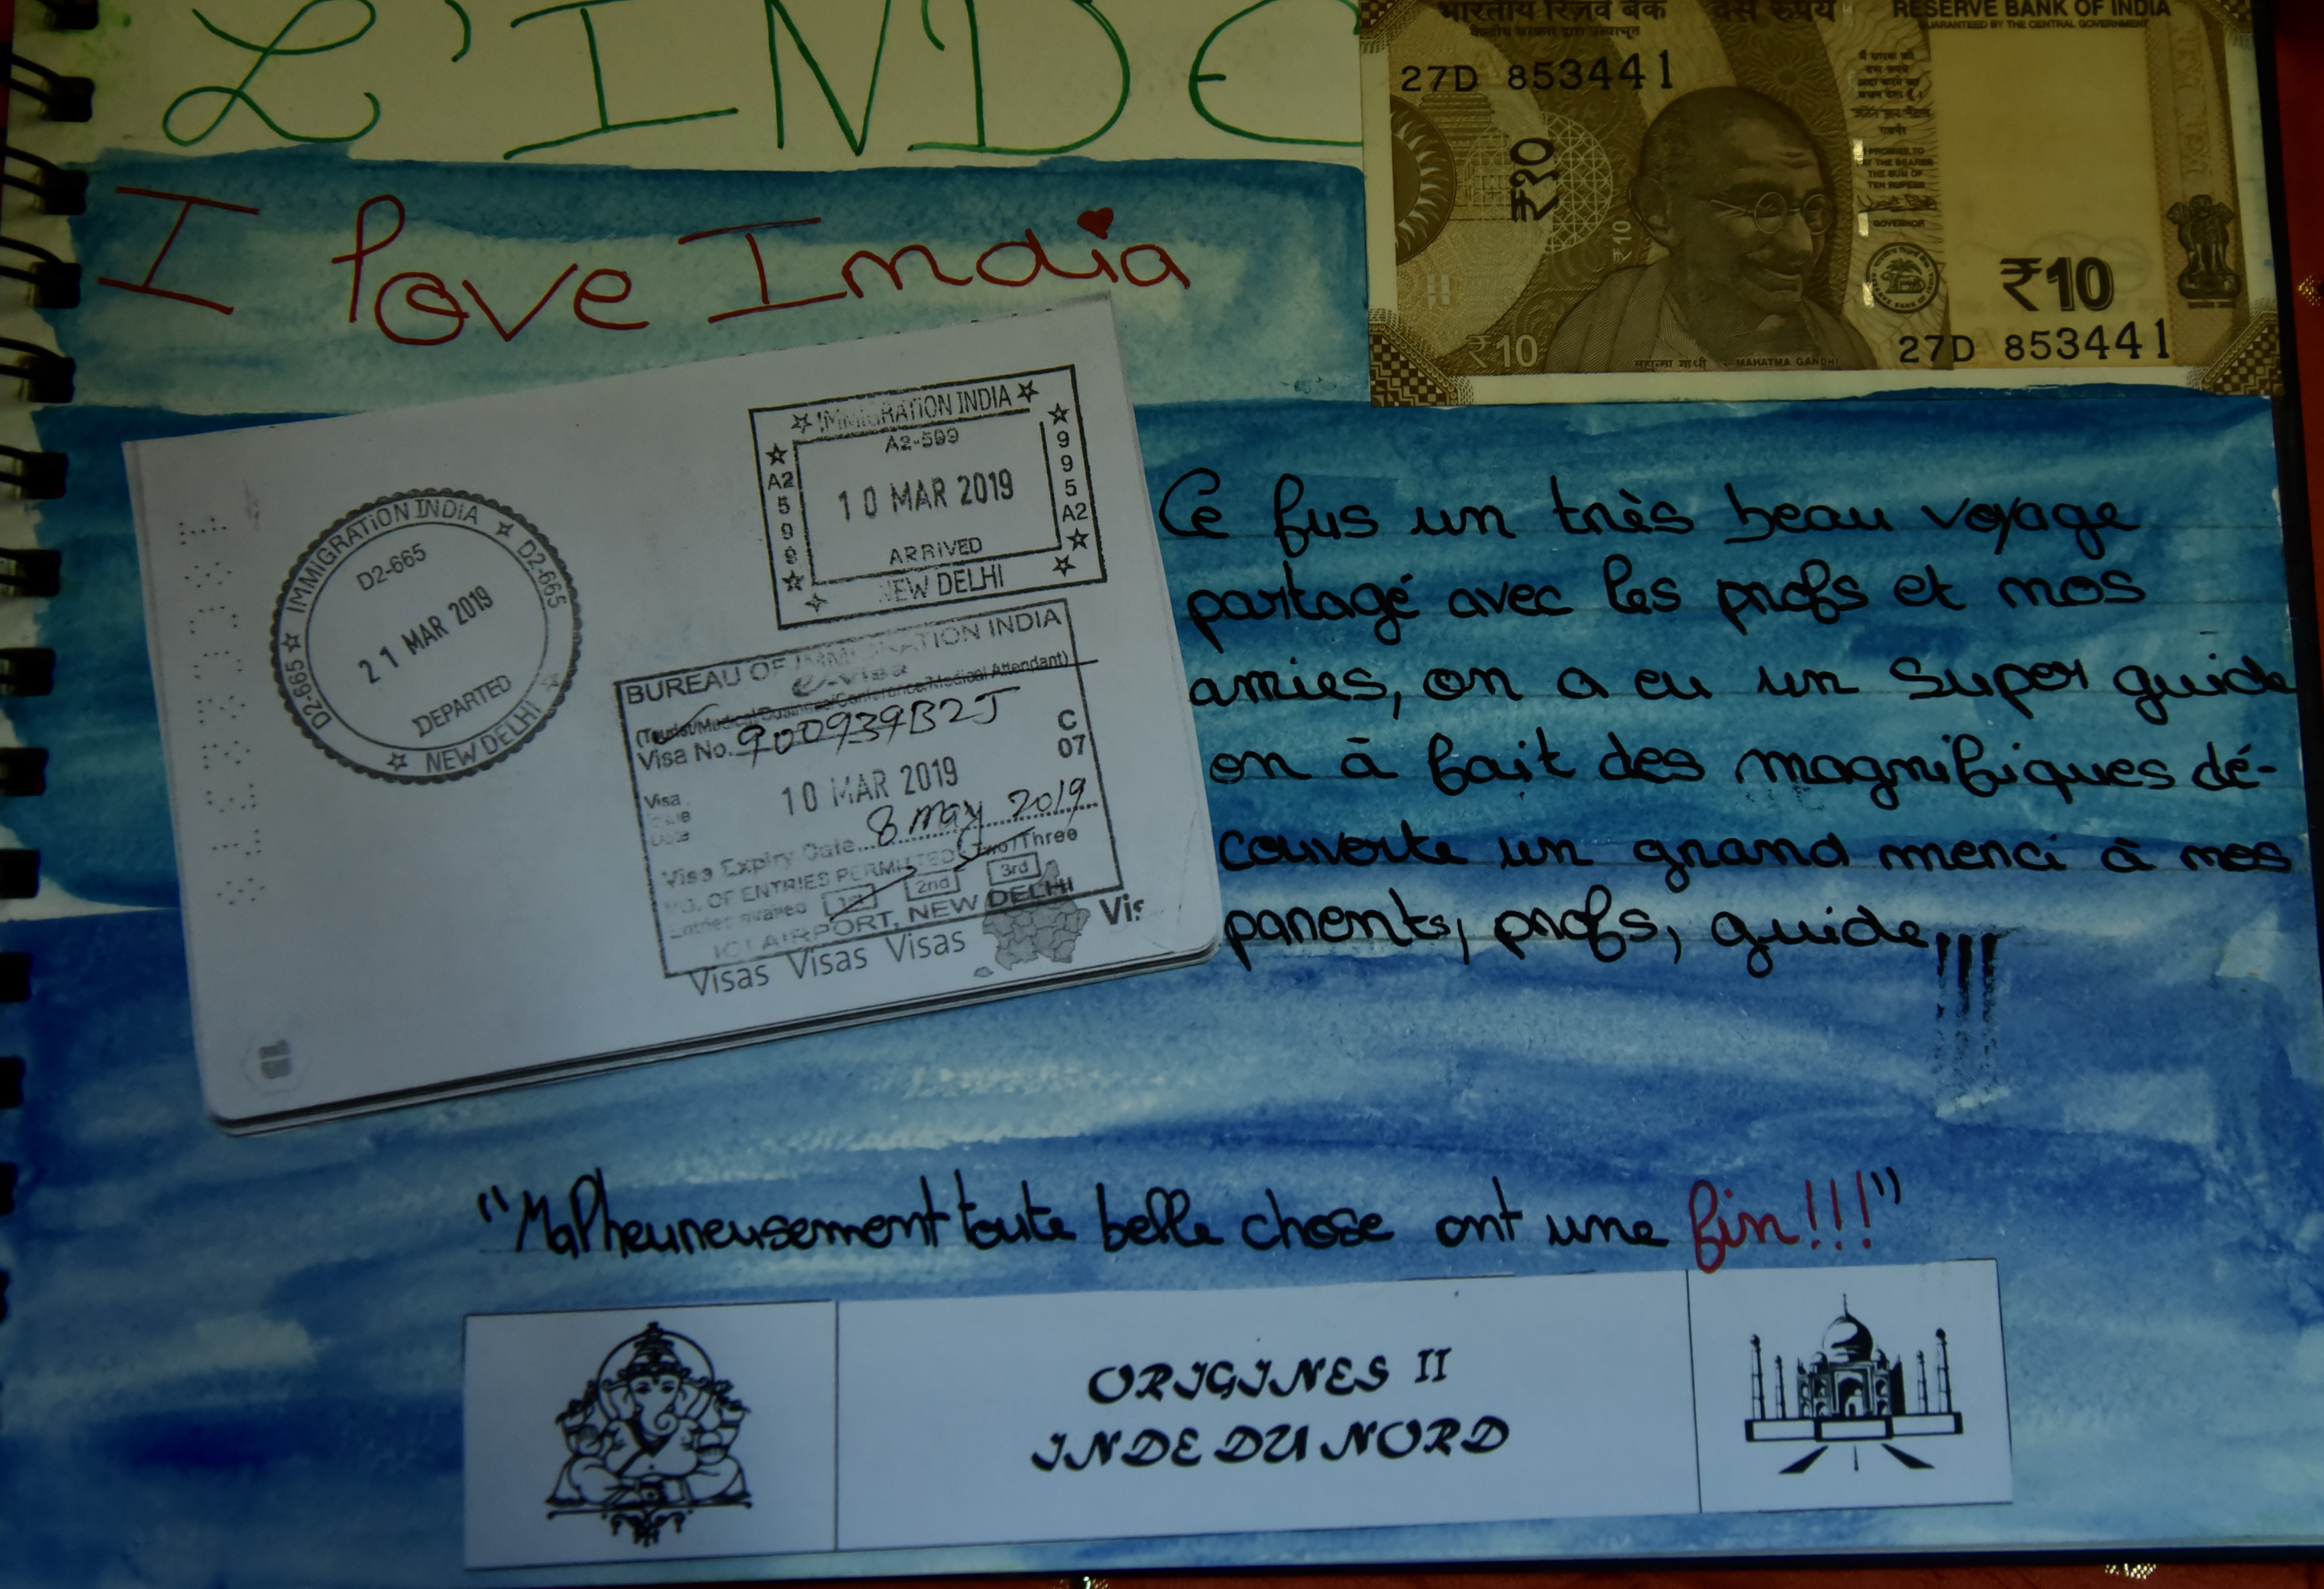 L'INDE
भारतीय रिज़र्व बैंक दस रुपये
RESERVE BANK OF INDIA
केन्द्रीय सरकार द्वारा प्रत्याभूत
GUARANTEED BY THE CENTRAL GOVERNMENT
27D 853441
₹१०
₹10
I PROMISE TO
PAY THE BEARER
THE SUM OF
TEN RUPEES
GOVERNOR
₹10
₹10
27D 853441
महात्मा गांधी MAHATMA GANDHI
I love India
IMMIGRATION INDIA
A2-599
10 MAR 2019
ARRIVED
NEW DELHI
A2 599
995 A2
IMMIGRATION INDIA
D2-665
D2-665
21 MAR 2019
DEPARTED
NEW DELHI
D2-665
BUREAU OF IMMIGRATION INDIA
e-Visa
(Tourist/Medical/Business/Conference/Medical Attendant)
Visa No. 900939B2J
C
07
Visa
Issue
Date
10 MAR 2019
Visa Expiry Date 8 may 2019
NO. OF ENTRIES PERMITTED Two/Three
Entries Availed 1st 2nd 3rd
IGI AIRPORT, NEW DELHI
Visas Visas Visas Vis
Ce fus un très beau voyage
partagé avec les profs et mos
amies, on a eu un super guide
on à fait des magnifiques dé-
couverte un grand merci à mes
parents, profs, guide,
"Malheureusement toute belle chose ont une fin!!!"
ORIGINES II
INDE DU NORD